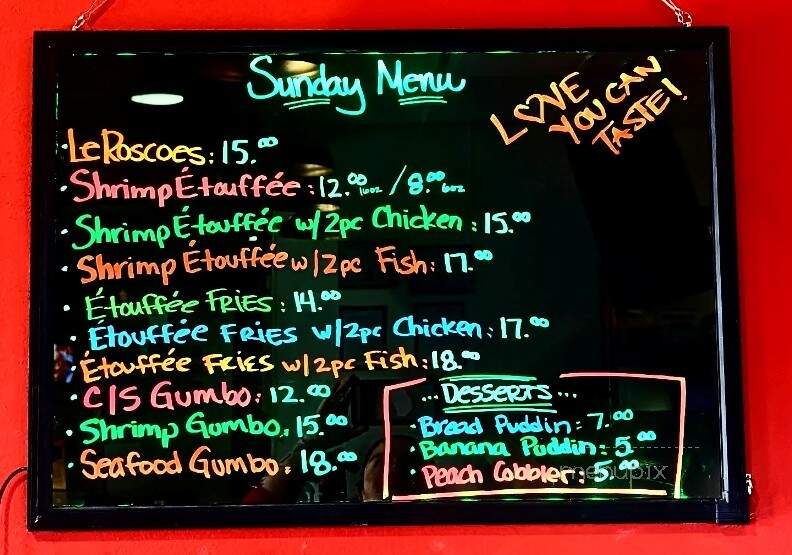 Sunday Menu
LOVE
YOU CAN
TASTE!
· Le Roscoes: 15.00
· Shrimp Étouffée: 12.00 16oz / 8.00 6oz
· Shrimp Étouffée w/2pc Chicken: 15.00
· Shrimp Étouffée w/2pc Fish: 17.00
· Étouffée FRIES: 14.00
· Étouffée FRIES w/2pc Chicken: 17.00
· Étouffée FRIES w/2pc Fish: 18.00
· C/S Gumbo: 12.00
· Shrimp Gumbo: 15.00
· Seafood Gumbo: 18.00
...DESSERTS...
· Bread Puddin: 7.00
· Banana Puddin: 5.00
· Peach Cobbler: 5.00
menupix